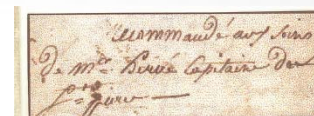 recommandé aux soins
de mr. Hervé Capitaine du